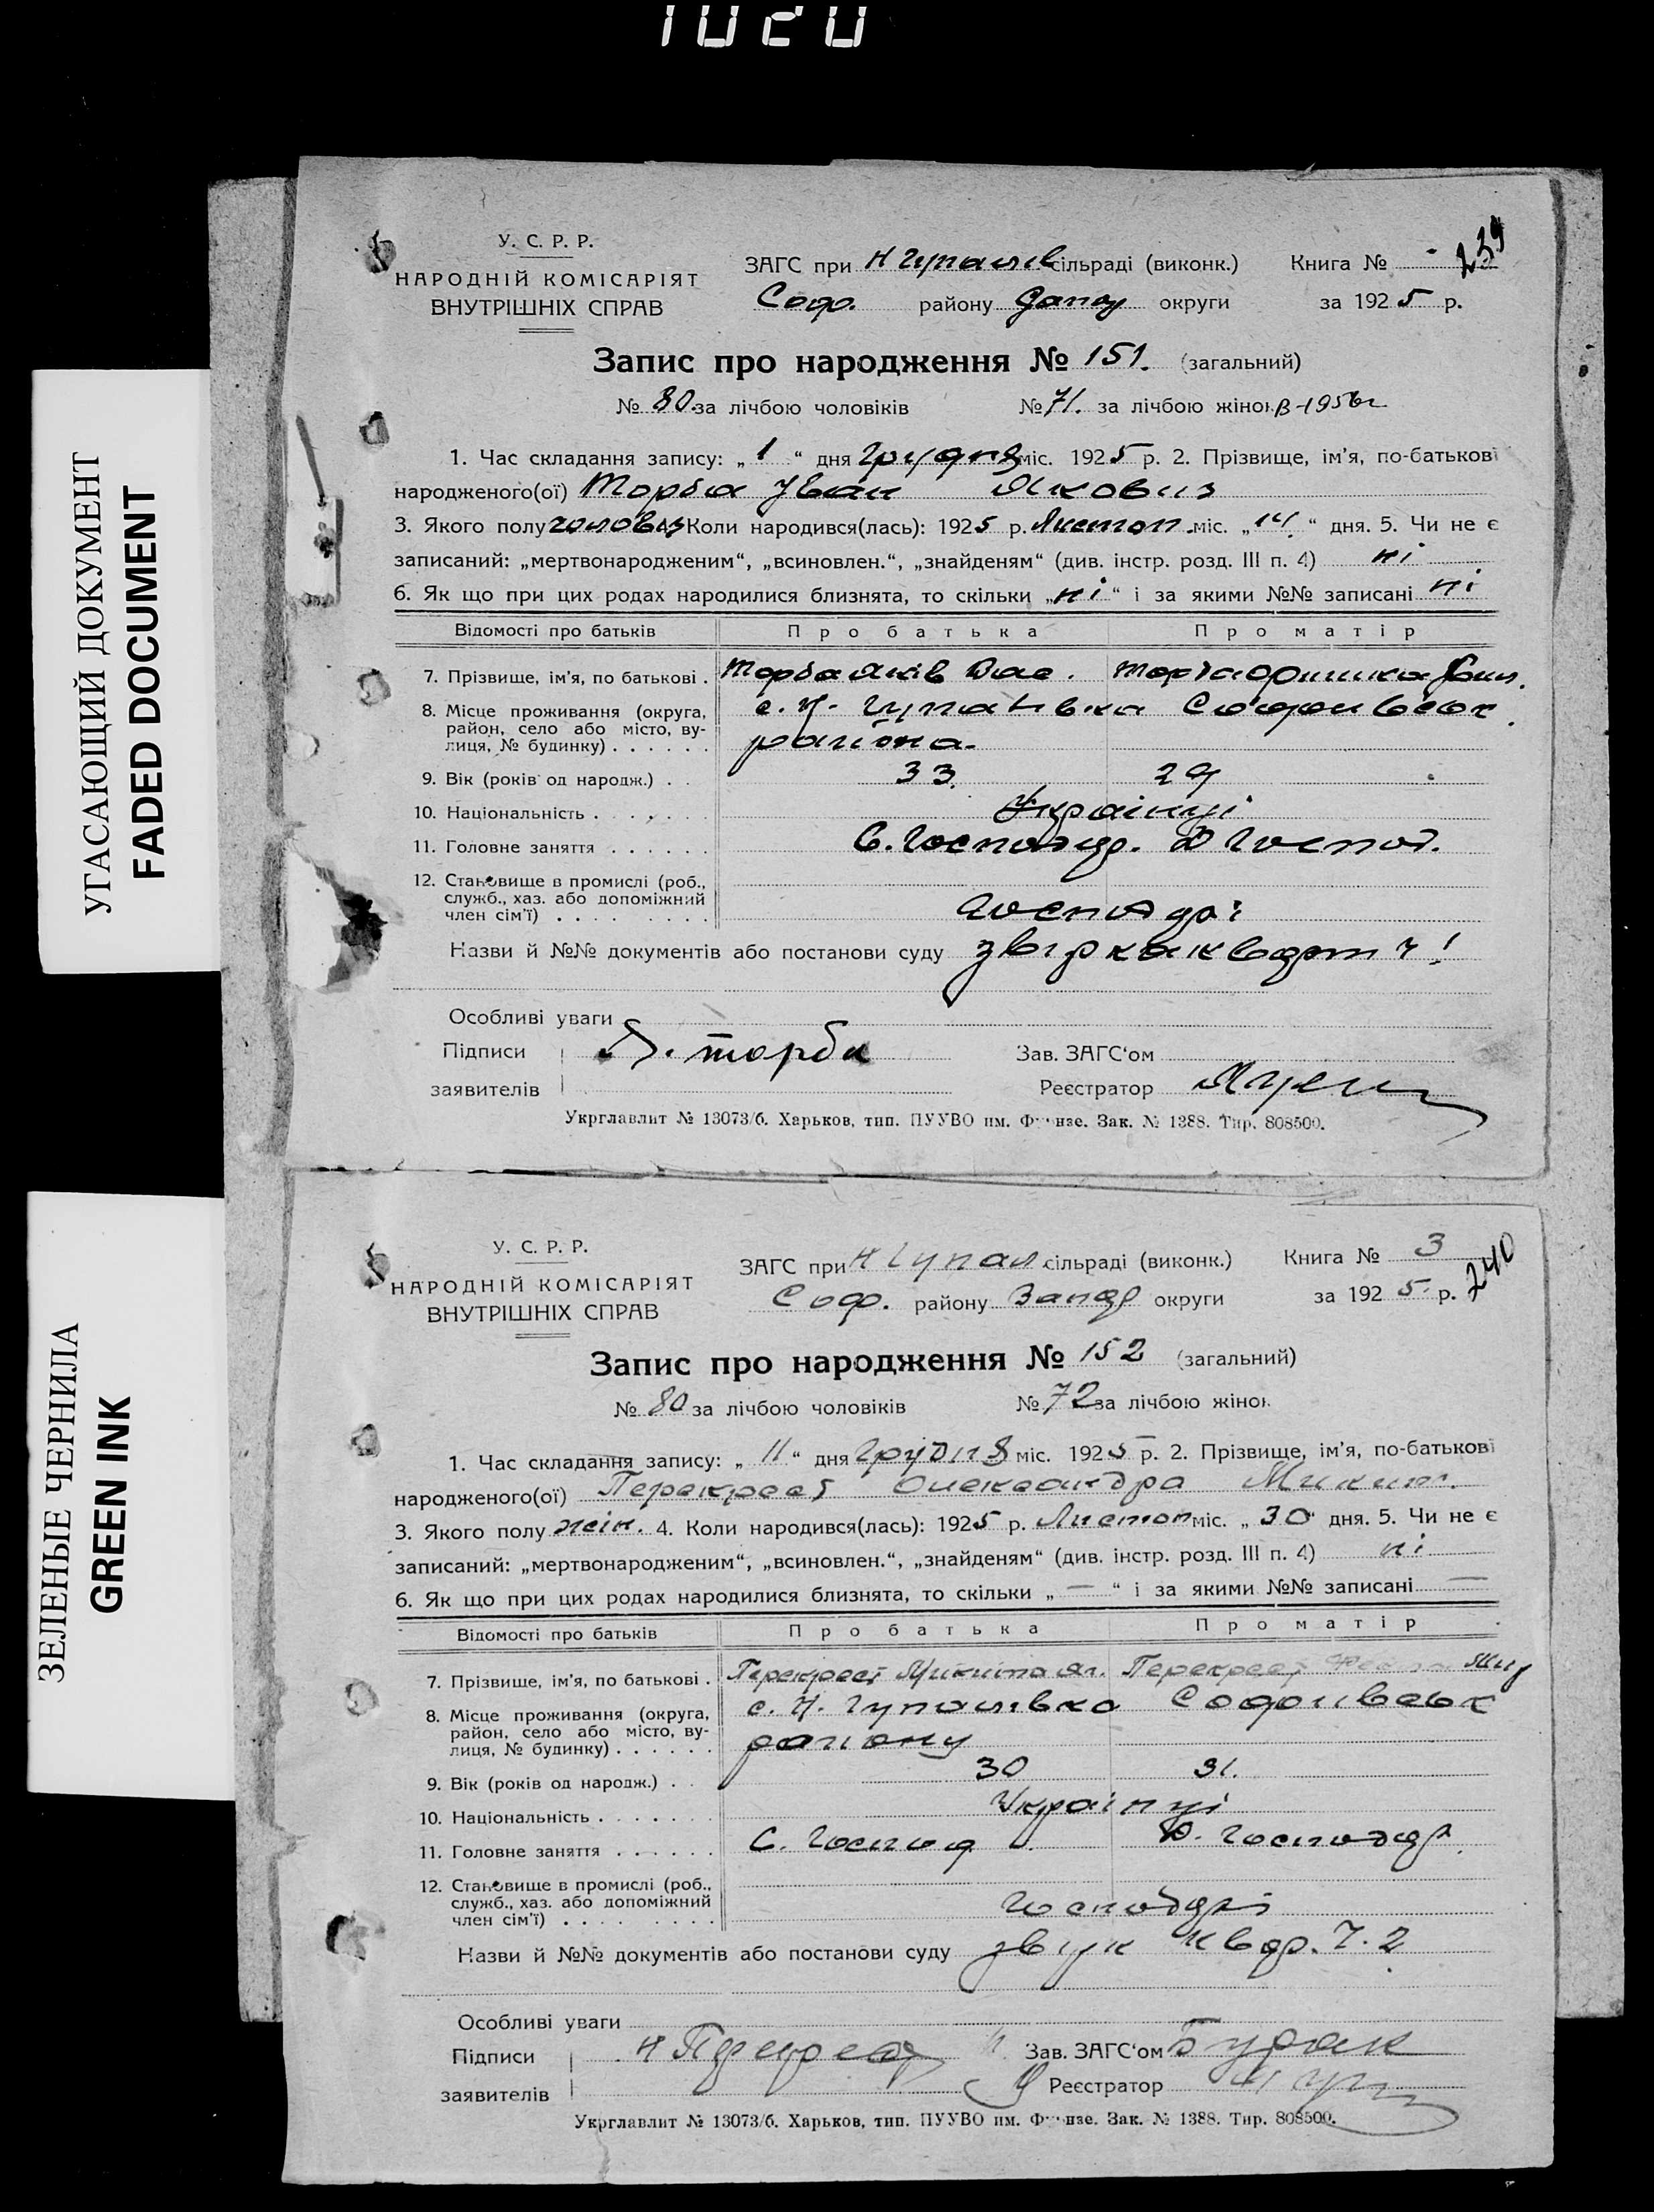 1020
УГАСАЮЩИЙ ДОКУМЕНТ
FADED DOCUMENT
ЗЕЛЕНЫЕ ЧЕРНИЛА
GREEN INK
239
У. С. Р. Р.
НАРОДНІЙ КОМІСАРІЯТ
ВНУТРІШНІХ СПРАВ
ЗАГС при Н Гупалів сільраді (виконк.) Книга №
Соф. району округи за 1925 р.
Запис про народження № 151. (загальний)
№ 80 за лічбою чоловіків № 71. за лічбою жінок В-1956г
1. Час складання запису: „ 1 “ дня Грудня міс. 1925 р. 2. Прізвище, ім'я, по-батькові
народженого(ої) Торба Іван Якович
3. Якого полу чолов. Коли народився(лась): 1925 р. Листоп. міс. „ 14 “ дня. 5. Чи не є
записаний: „мертвонародженим“, „всиновлен.“, „знайденям“ (див. інстр. розд. III п. 4) ні
6. Як що при цих родах народилися близнята, то скільки „ні“ і за якими №№ записані ні
Відомості про батьків Про батька Про матір
7. Прізвище, ім'я, по батькові . Торба Яків Вас. Торба Оришка
8. Місце проживання (округа, район, село або місто, вулиця, № будинку) . . . . . . с. Н. Гупалівка Софиївськ
района.
9. Вік (років од народж.) . . 33. 29
10. Національність . . . . . . Українці
11. Головне заняття . . . . . . С. Господар. Д Господ.
12. Становище в промислі (роб., служб., хаз. або допоміжний член сім'ї) . . . . . . . . Господарі
Назви й №№ документів або постанови суду звірка
Особливі уваги
Підписи Я. торба Зав. ЗАГС'ом
заявителів Реєстратор
Укрглавлит № 13073/б. Харьков, тип. ПУУВО им. Фрунзе. Зак. № 1388. Тир. 808500.
240
У. С. Р. Р.
НАРОДНІЙ КОМІСАРІЯТ
ВНУТРІШНІХ СПРАВ
ЗАГС при Н Гупал сільраді (виконк.) Книга № 3
Соф. району Запор округи за 1925 р.
Запис про народження № 152 (загальний)
№ 80 за лічбою чоловіків № 72 за лічбою жінок
1. Час складання запису: „ 11 “ дня Грудня міс. 1925 р. 2. Прізвище, ім'я, по-батькові
народженого(ої) Перекрест Олександра Микит.
3. Якого полу жін. 4. Коли народився(лась): 1925 р. Листоп міс. „ 30 “ дня. 5. Чи не є
записаний: „мертвонародженим“, „всиновлен.“, „знайденям“ (див. інстр. розд. III п. 4) ні
6. Як що при цих родах народилися близнята, то скільки „ — “ і за якими №№ записані —
Відомості про батьків Про батька Про матір
7. Прізвище, ім'я, по батькові . Перекрест Микита Перекрест
8. Місце проживання (округа, район, село або місто, вулиця, № будинку) . . . . . . с. Н. Гупалівка Софиївськ
району
9. Вік (років од народж.) . . 30 31.
10. Національність . . . . . . . Українці
11. Головне заняття . . . . . . С. Господ Д. Господар
12. Становище в промислі (роб., служб., хаз. або допоміжний член сім'ї) . . . . . . . . Господарі
Назви й №№ документів або постанови суду
Особливі уваги
Підписи Зав. ЗАГС'ом Бурак
заявителів Реєстратор
Укрглавлит № 13073/б. Харьков, тип. ПУУВО им. Фрунзе. Зак. № 1388. Тир. 808500.